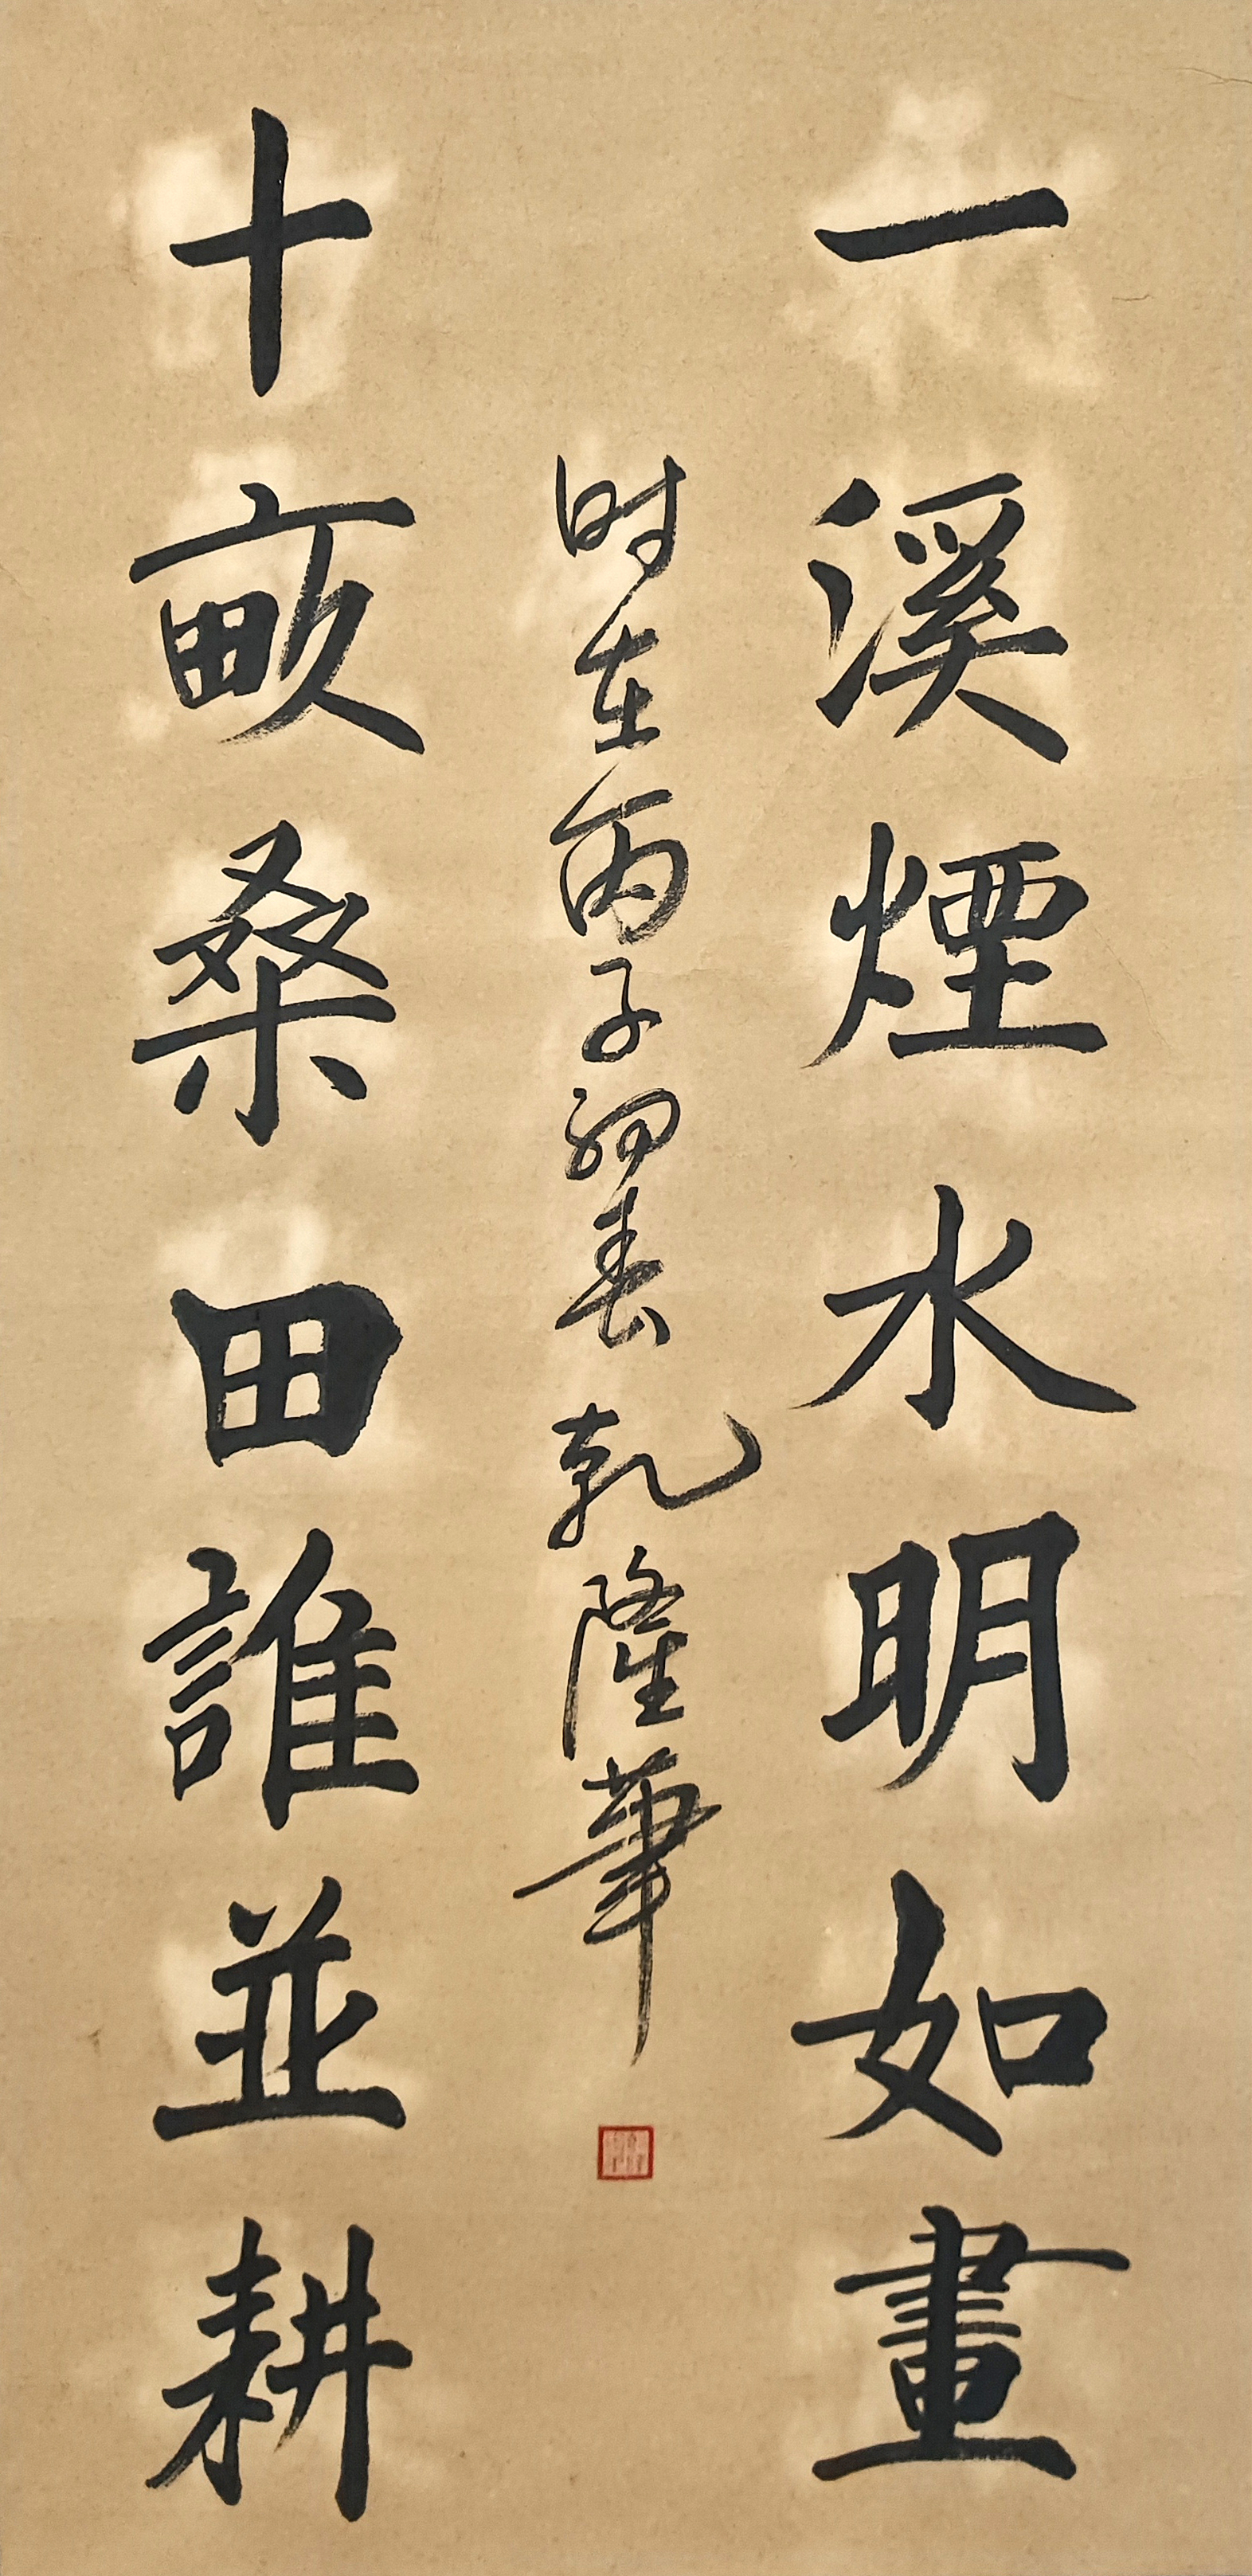 一溪煙水明如畫
时在丙子初春乾隆筆
十畝桑田誰並耕